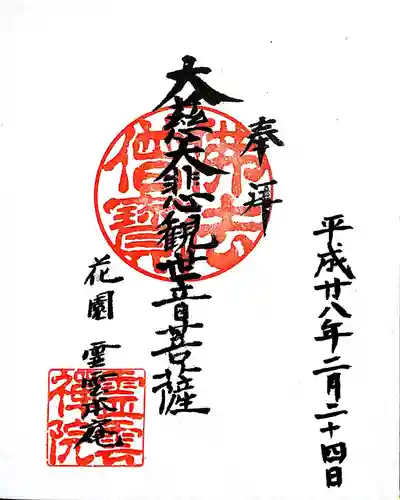 平成廿八年二月二十四日
奉拝
大慈大悲観世音菩薩
佛法
僧寳
花園 霊雲本庵
霊雲
禅院